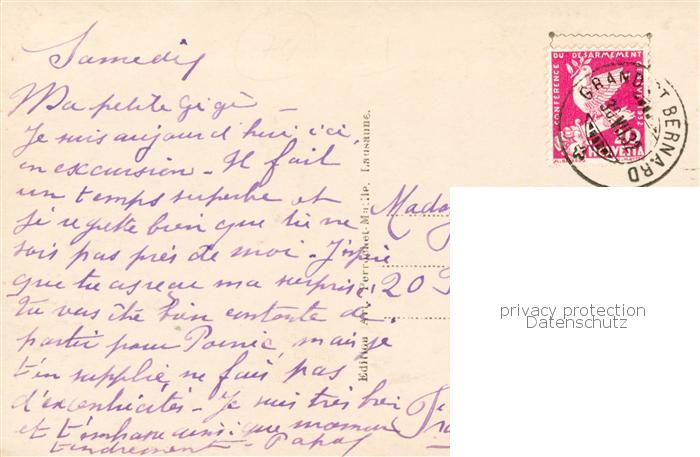 Samedi
Ma petite Gigi -
Je suis aujourd'hui ici,
en excursion - Il fait
un temps superbe et
je regrette bien que tu ne
sois pas près de moi - J'espère
que tu as reçu ma surprise.
Tu vas être bien contente de
partir pour mais je
t'en supplie, ne fais pas
d'excentricités - Je suis très bien
et t'embrasse ainsi que maman
tendrement - Papa
Edition Art. Perrochet-Matile, Lausanne.
CONFÉRENCE DU DÉSARMEMENT GENÈVE 1932
10
HELVETIA
GRAND ST BERNARD
Mada
20
Fra
privacy protection
Datenschutz